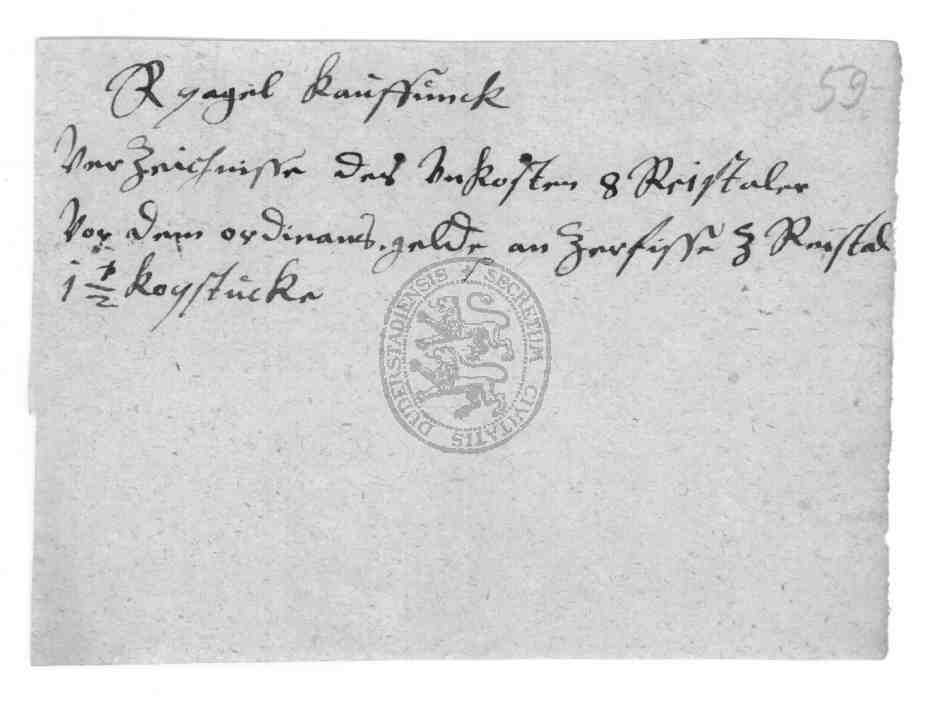 Ryagel Kauffunck
59
Verzeichnisse des Vnkosten 8 Reistaler
Vor dem ordinans gelde an 3 Reistal
1 1/2 Kopstücke
SECRETUM CIVITATIS DUDERSTADIENSIS